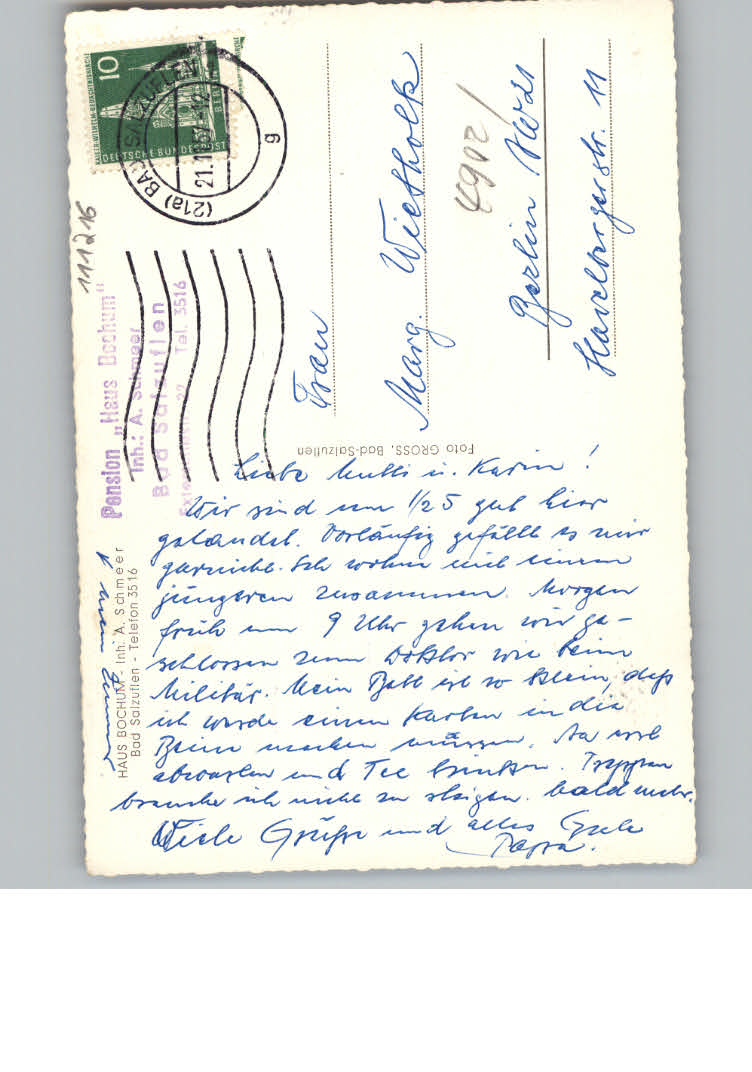 Liebe Mutti u. Karin!
Wir sind um 1/2 5 gut hier
gelandet. Vorläufig gefällt es mir
garnicht. Ich wohne mit einem
jüngeren zusammen. Morgen
früh um 9 Uhr gehen wir ge-
schlossen zum Doktor wie beim
Militär. Mein Bett ist so klein, daß
ich werde einen Knoten in die
Beine machen müssen. Na erst
abwarten und Tee trinken. Treppen
brauche ich nicht zu steigen. bald mehr.
Viele Grüße und alles Gute
Pappa.
Frau
Marg. Wietholk
4902/
Berlin
Havelbergerstr. 11
KAISER-WILHELM-GEDÄCHTNISKIRCHE
10
BERLIN
DEUTSCHE BUNDESPOST
(21a) BAD SALZUFLEN
21.10.57-19
g
111216
Pension „Haus Bochum"
Inh.: A. Schmeer
Bad Salzuflen
Tel. 3516
HAUS BOCHUM - Inh. A. Schmeer
Bad Salzuflen - Telefon 3516
mein Zimmer
Foto GROSS, Bad-Salzuflen